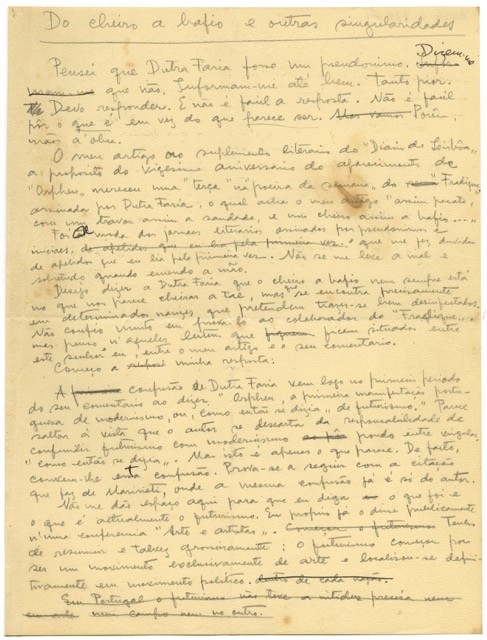 Do cheiro a bafio e outras singularidades
Pensei que Dutra Faria fosse um pseudonimo. Dizem-me
que não. Informam-me até bem. Tanto pior.
Devo responder. E não é facil a resposta. Não é facil
pôr o que é em vez do que parece ser. Porém,
mãos á obra.
O meu artigo no suplemento literario do "Diario de Lisbôa",
a proposito do vigesimo aniversario do aparecimento de
"Orpheu", mereceu uma "terça na poeira da semana" do "Fradique",
assinado por Dutra Faria, o qual achou o meu artigo "assim pacato,
com um travo assim a saudade, e um cheiro assim a bafio..."
Foi a moda dos jornaes literarios assinados por pseudonimos e
iniciaes, de apelidos que eu lia pela primeira vez que me fez duvidar
de apelidos que eu lia pela primeira vez. Não se me leve a mal e
sobretudo quando emendo a mão.
Desejo dizer a Dutra Faria que o cheiro a bafio nem sempre está
no que nos parece cheirar a tal, mas que se encontra precisamente
em determinados narizes, que pretendem trazer-se bem desinfectados.
Não confio muito em prova-lo ao colaborador do "Fradique",
mas penso n'aquêles leitores que ficem situados entre
este senhor e eu, entre o meu artigo e o seu comentario.
Começo a minha resposta:
A confusão de Dutra Faria vem logo no primeiro periodo
do seu comentario ao dizer "Orpheu, a primeira manifestação portu-
guesa de modernismo, ou, como então se dizia, de futurismo." Parece
saltar á vista que o autor se descarta da responsabilidade de
confundir futurismo com modernismo pondo entre virgulas
"como então se dizia". Mas isto é apenas o que parece. De facto,
convem-lhe esta confusão. Prova-se a seguir com a citação
que faz de Marinetti, onde a mesma confusão já é só do autor.
Não me dás espaço aqui para que eu diga o que foi e
o que é actualmente o futurismo. Eu proprio já o disse publicamente
n'uma conferencia "Arte e artistas". Começou o futurismo Tenho
de resumir e talvez grosseiramente: o futurismo começou por
ser um movimento exclusivamente de arte e localisou-se defini-
tivamente em movimento politico. dentro de cada nação.
Em Portugal o futurismo não teve a nitidez precisa nem
em arte nem campo nem no outro.